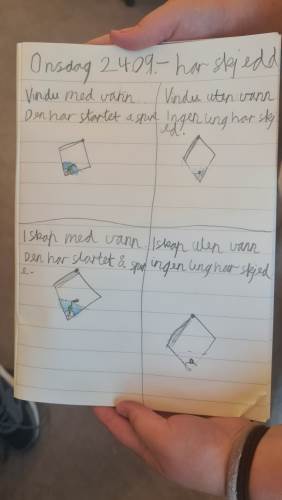 Onsdag 2409.- har skjedd
Vindu med vann
Den har startet å spir
Vindu uten vann
Ingen ting har skj
ed!
I skap med vann
Den har startet å spir
e.
I skap uten vann
ingen ting har skjed